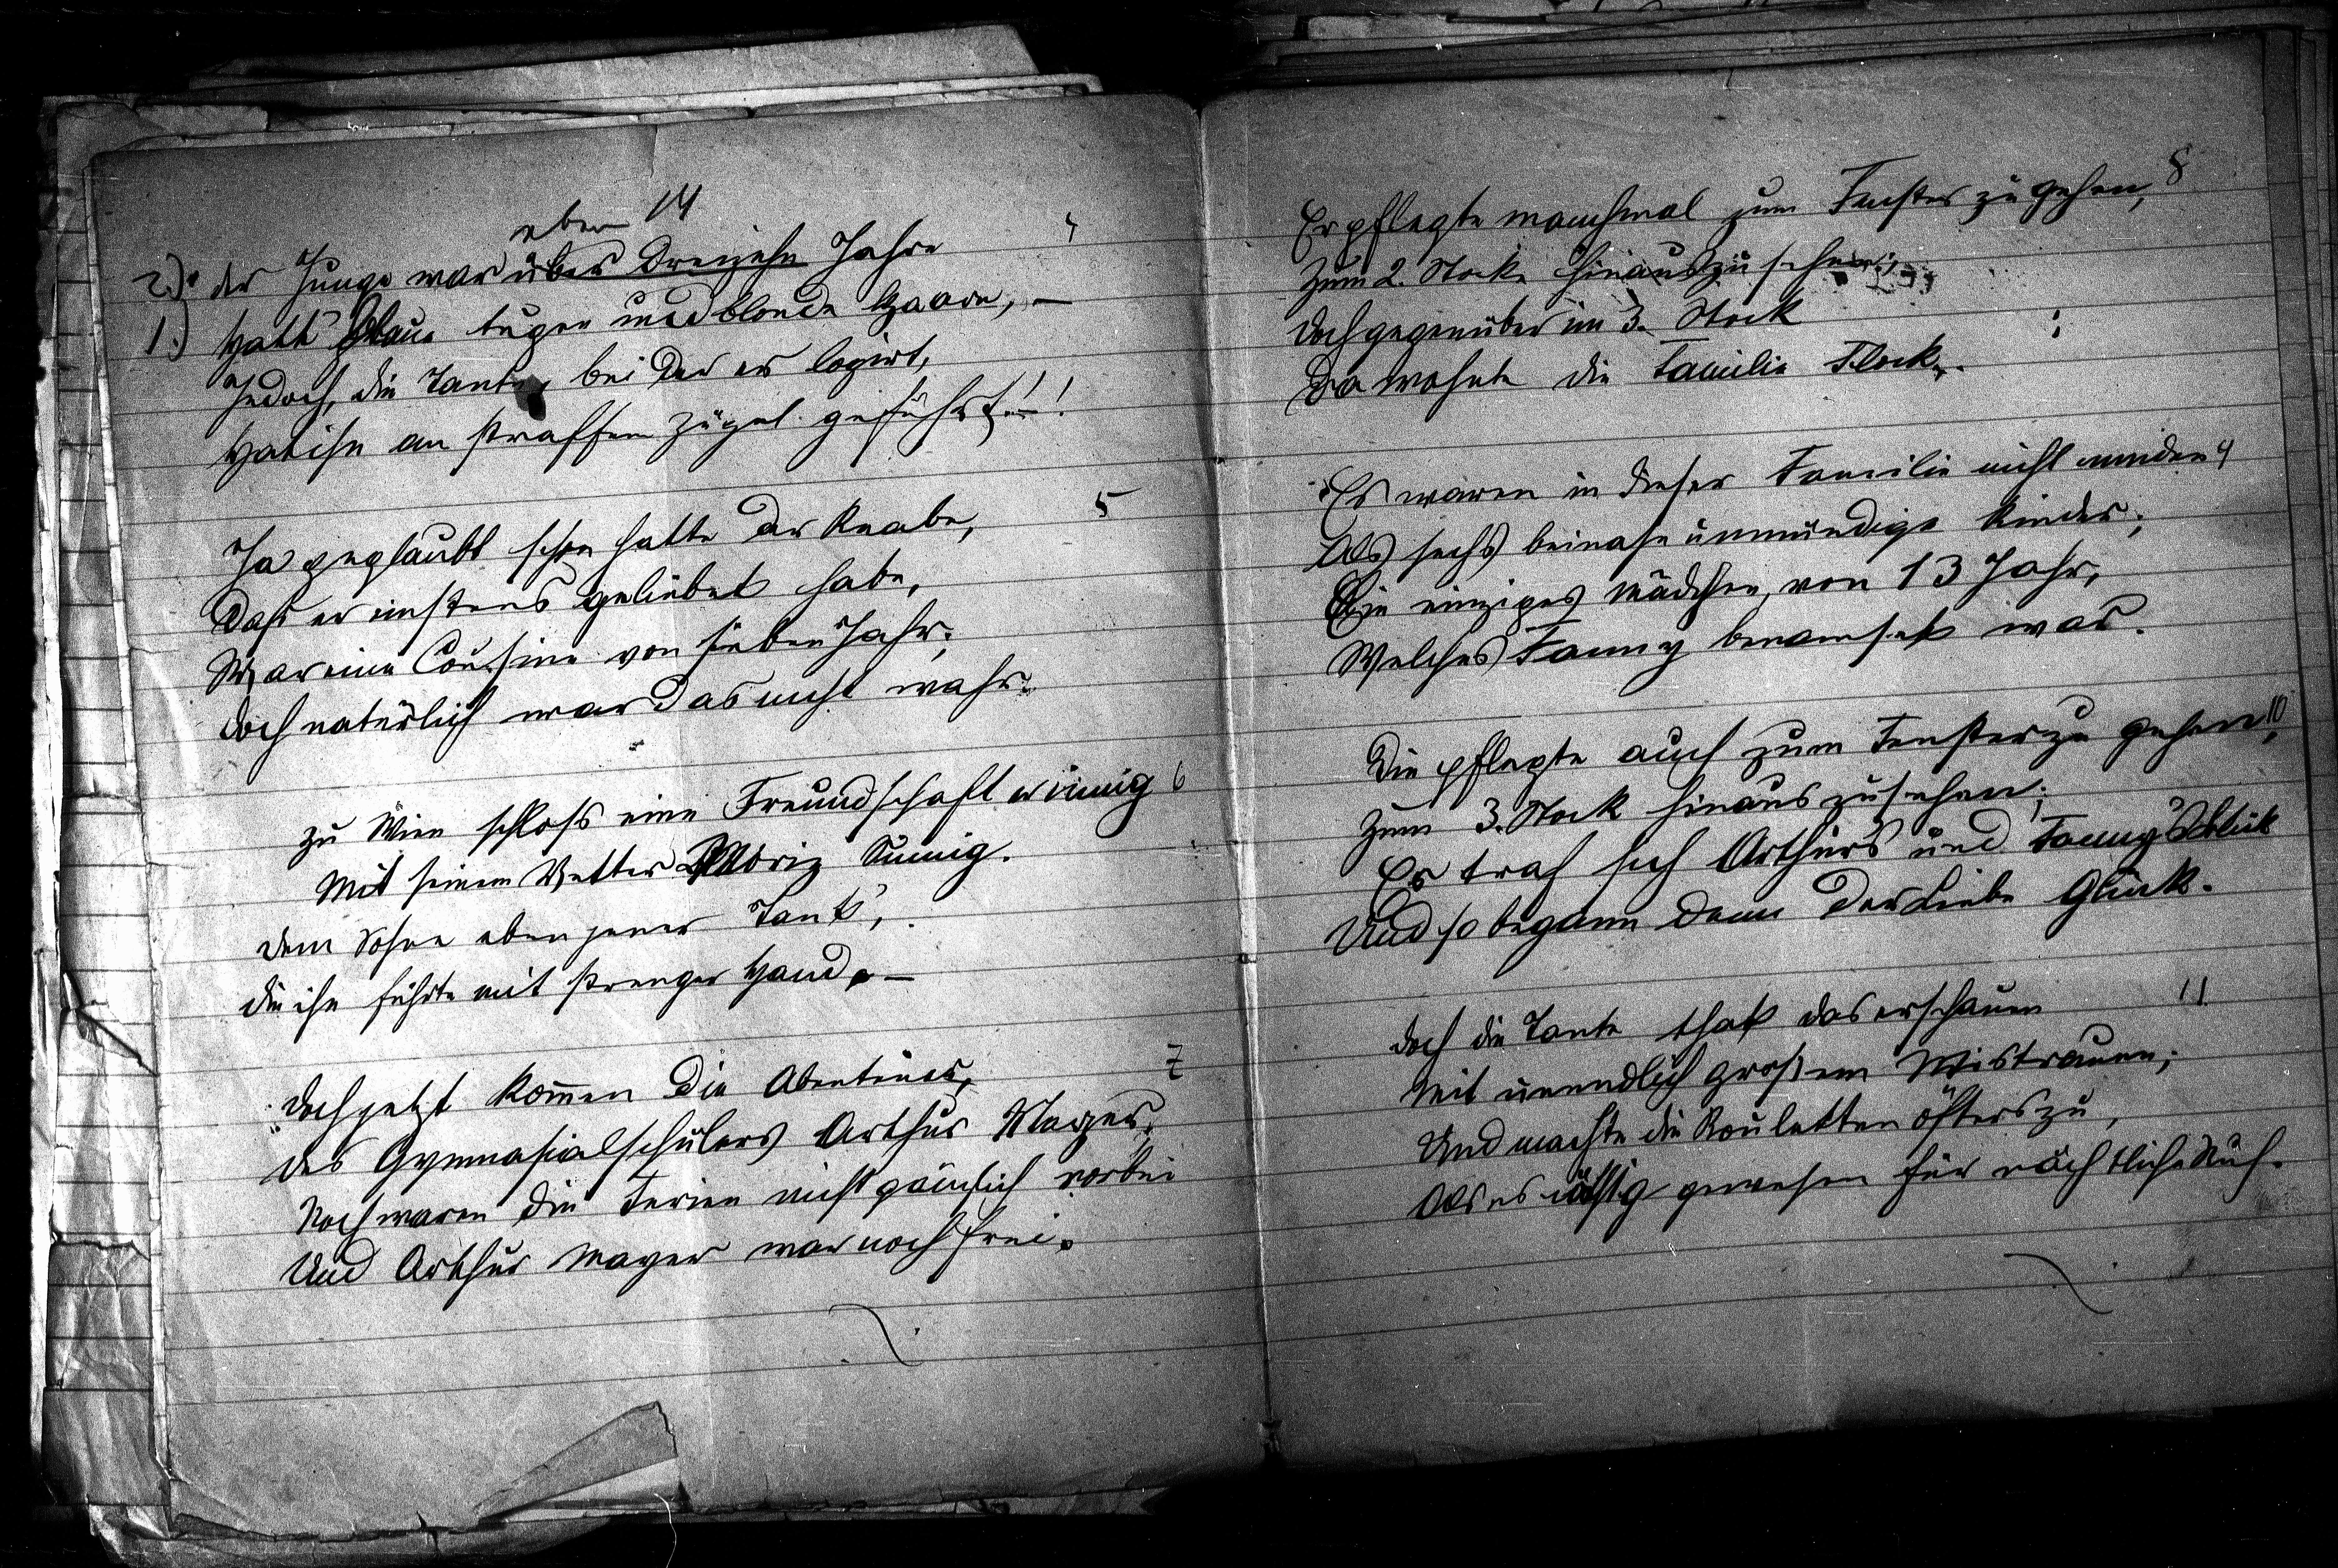 eben 14
2.) der Junge war über dreizehn Jahre 4
1.) Hatt' blaue Augen und blonde Haare, –
Jedoch, die Tante, bei der er logirt,
Hat ihn an straffem Zügel geführt –!!
Ja geglaubt schon hatte der Knabe, 5
Daß er einstens geliebet habe,
War eine Cousine von sieben Jahr;
Doch natürlich war das nicht wahr.
Zu Wien schloß eine Freundschaft er innig 6
Mit seinem Vetter Moriz Sunnig.
Dem Sohne eben jener Tant',
Die ihn führte mit strenger Hand. –
Doch jetzt kom̄en die Abenteuer, 7
Des Gymnasialschülers Arthur Mayer.
Noch waren die Ferien nicht gänzlich vorbei
Und Arthur Mayer war noch frei.
Er pflegte manchmal zum Fenster zu gehen, 8
Zum 2. Stocke hinauszusehen;
Doch gegenüber im 3. Stock
Da wohnte die Familie Flock.
Es waren in dieser Familie nicht minder 9
Als sechs beinahe unmündige Kinder;
Ein einziges Mädchen, von 13 Jahr,
Welches Fanny benamset war.
Die pflegte auch zum Fenster zu gehen, 10
Zum 3. Stock hinauszusehen;
Es traf sich Arthurs und Fanny's Blick
Und so begann denn der Liebe Glück.
Doch die Tante that das erschauen 11
Mit unendlich großem Mistrauen;
Und machte die Rouletten öfters zu,
Als es nöthig gewesen für nächtliche Ruh.